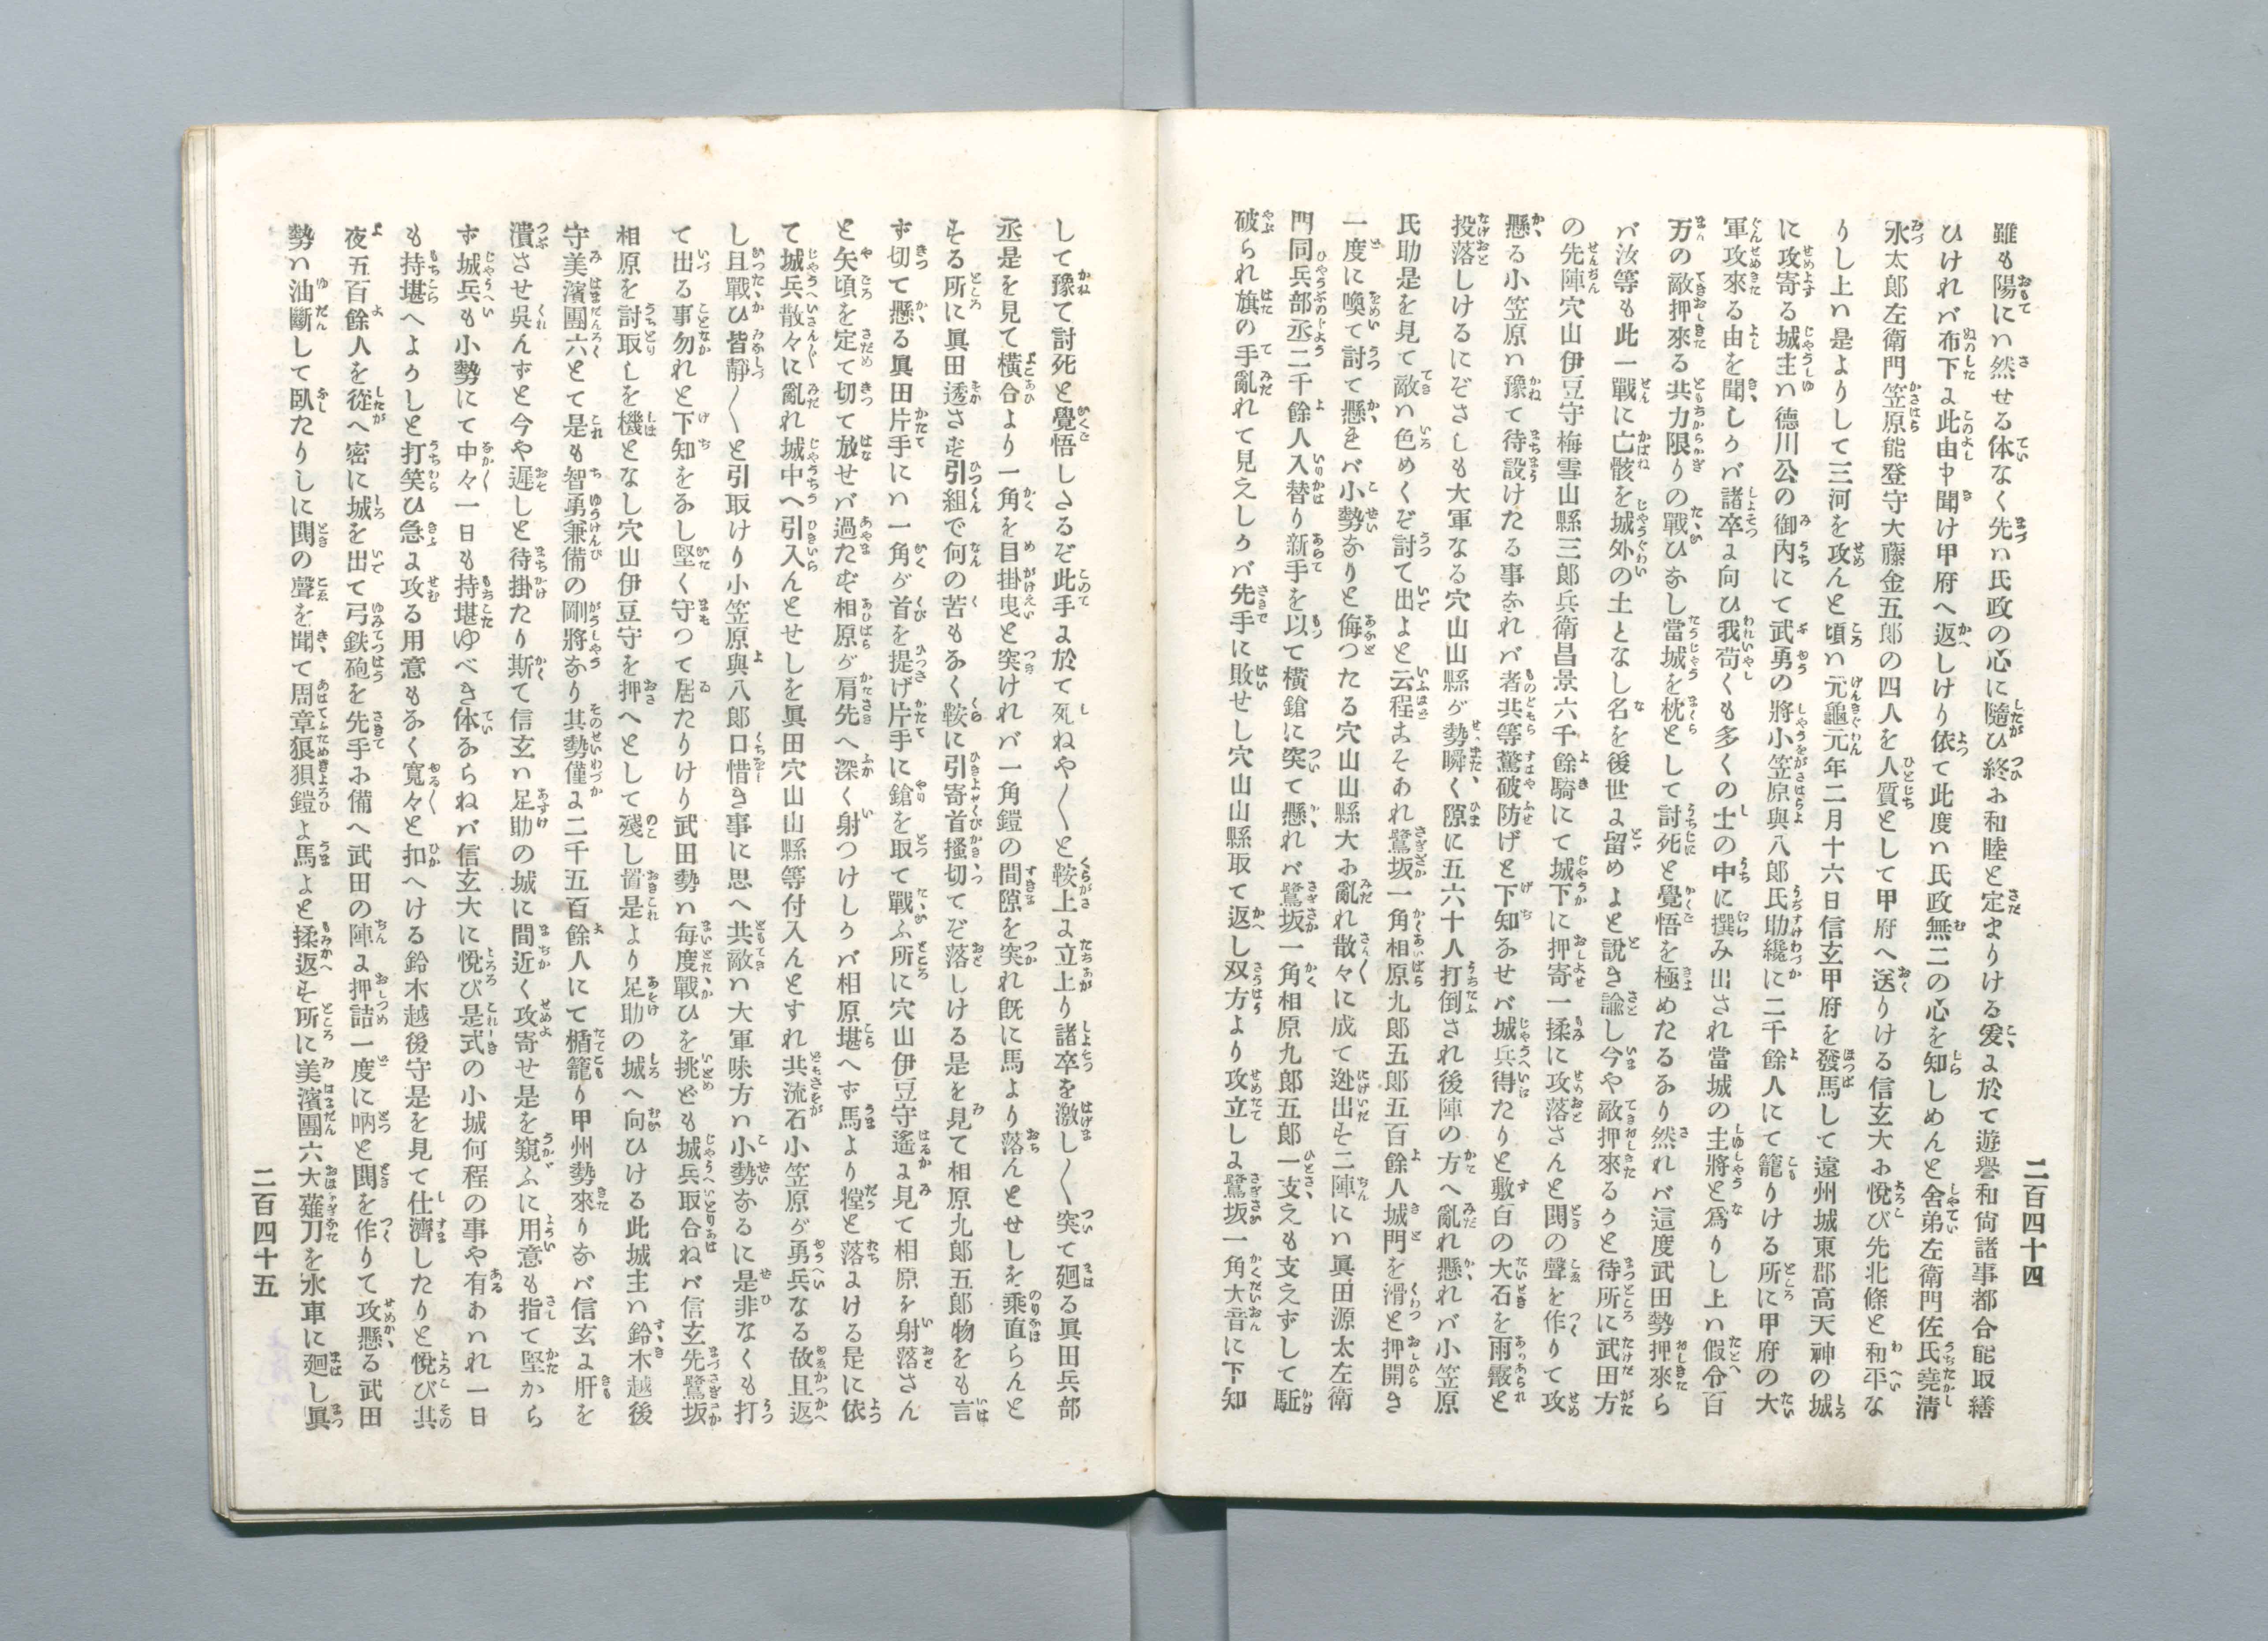 二百四十四
雖も陽にハ然せる体なく先ハ民政の心に隨ひ終に和睦と定まりける爰に於て遊譽和尙諸事都合能取繕
ひけれバ布下に此由申聞け甲府へ返しけり依て此度ハ氏政無二の心を知しめんと舍弟左衛門佐氏堯淸
水太郎左衛門笠原能登守大藤金五郎の四人を人質として甲府へ送りける信玄大に悅び先北條と和平な
りし上ハ是よりして三河を攻んと頃ハ元龜元年二月十六日信玄甲府を發馬して遠州城東郡高天神の城
に攻寄る城主ハ德川公の御內にて武勇の將小笠原與八郎氏助纔に二千餘人にて籠りける所に甲府の大
軍攻來る由を聞しかバ諸卒に向ひ我苟くも多くの士の中に撰み出され當城の主將と爲りし上ハ假令百
万の敵押來る共力限りの戰ひをし當城を枕として討死と覺悟を極めたるなり然れバ這度武田勢押來ら
バ汝等も此一戰に亡骸を城外の土となし名を後世に留めよと說き諭し今や敵押來るかと待所に武田方
の先陣穴山伊豆守梅雪山縣三郎兵衛昌景六千餘騎にて城下に押寄一揉に攻落さんと鬨の聲を作りて攻
懸る小笠原ハ豫て待設けたる事なれバ者共等驚破防げと下知なせバ城兵得たりと敷百の大石を雨霰と
投落しけるにぞさしも大軍なる穴山山縣が勢瞬く隙に五六十人打倒され後陣の方へ亂れ懸れバ小笠原
氏助是を見て敵ハ色めくぞ討て出よと云程こそあれ鷺坂一角相原九郎五郎五百餘人城門を滑と押開き
一度に喚て討て懸きバ小勢なりと侮つたる穴山山縣大に亂れ散々に成て迯出を二陣にハ眞田源太左衛
門同兵部丞二千餘人入替り新手を以て橫鎗に突て懸れバ鷺坂一角相原九郎五郎一支えも支えずして駈
破られ旗の手亂れて見えしかバ先手に敗せし穴山山縣取て返し双方より攻立しに鷺坂一角大音に下知
して豫て討死と覺悟しさるぞ此手に於て死ねや〱と鞍上に立上り諸卒を激し〱突て廻る眞田兵部
丞是を見て橫合より一角を目掛曳と突けれバ一角鎧の間隙を突れ旣に馬より落んとせしを乘直らんと
をる所に眞田透さず引組で何の苦もなく鞍に引寄首搔切てぞ落しける是を見て相原九郎五郎物をも言
ず切て懸る眞田片手にハ一角が首を提げ片手に鎗を取て戰ふ所に穴山伊豆守遙に見て相原を射落さん
と矢頃を定て切て放せバ過たず相原が肩先へ深く射つけしかバ相原堪へず馬より𨻶と落にける是に依
て城兵散々に亂れ城中へ引入んとせしを眞田穴山山縣等付入んとすれ共流石小笠原が勇兵なる故且返
し且戰ひ皆靜〱と引取けり小笠原與八郎口惜き事に思へ共敵ハ大軍味方ハ小勢なるに是非なくも打
て出る事勿れと下知をなし堅く守つて居たりけり武田勢ハ每度戰ひを挑ども城兵取合ねバ信玄先鷺坂
相原を討取しを機となし穴山伊豆守を押へとして殘し置是より足助の城へ向ひける此城主ハ鈴木越後
守美濱團六とて是も智勇兼備の剛將なり其勢僅に二千五百餘人にて楯籠り甲州勢來りなバ信玄に肝を
潰させ吳んずと今や遲しと待掛たり斯て信玄ハ足助の城に間近く攻寄せ是を窺ふに用意も指て堅から
ず城兵も小勢にて中々一日も持堪ゆべき体ならねバ信玄大に悅び是式の小城何程の事や有あハれ一日
も持堪へよかしと打笑ひ急に攻る用意もなく寬々と扣へける鈴木越後守是を見て仕濟したりと悅び其
夜五百餘人を從へ密に城を出て弓鉄砲を先手に備へ武田の陣に押詰一度に吶と鬨を作りて攻懸る武田
勢ハ油斷して臥たりしに鬨の聲を聞て周章狼狽鎧よ馬よと揉返を所に美濱團六大薙刀を水車に廻し眞
二百四十五